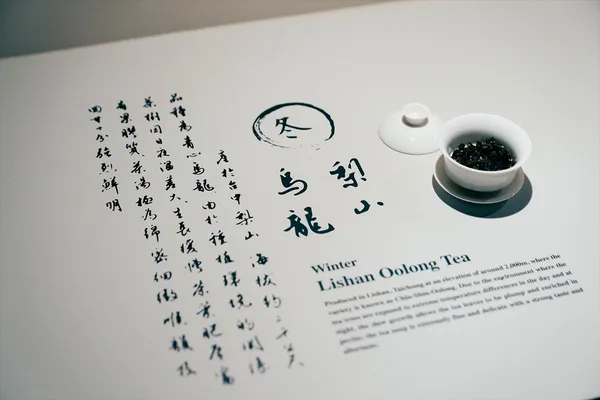 冬
梨山
烏龍
產於台中梨山海拔約二千公尺
品種為青心烏龍由於種植環境的關係
茶樹因日夜溫差大生長緩慢茶葉肥厚富
有果膠質茶湯極為綿密細緻喉韻及
回甘十分強烈鮮明
Winter
Lishan Oolong Tea
Produced in Lishan, Taichung at an elevation of around 2,000m, where the
variety is known as Chin-Shin-Oolong. Due to the environment where the
tea trees are exposed to extreme temperature differences in the day and at
night, the slow growth allows the tea leaves to be plump and enriched in
pectin, the tea soup is extremely fine and delicate with a strong taste and
aftertaste.